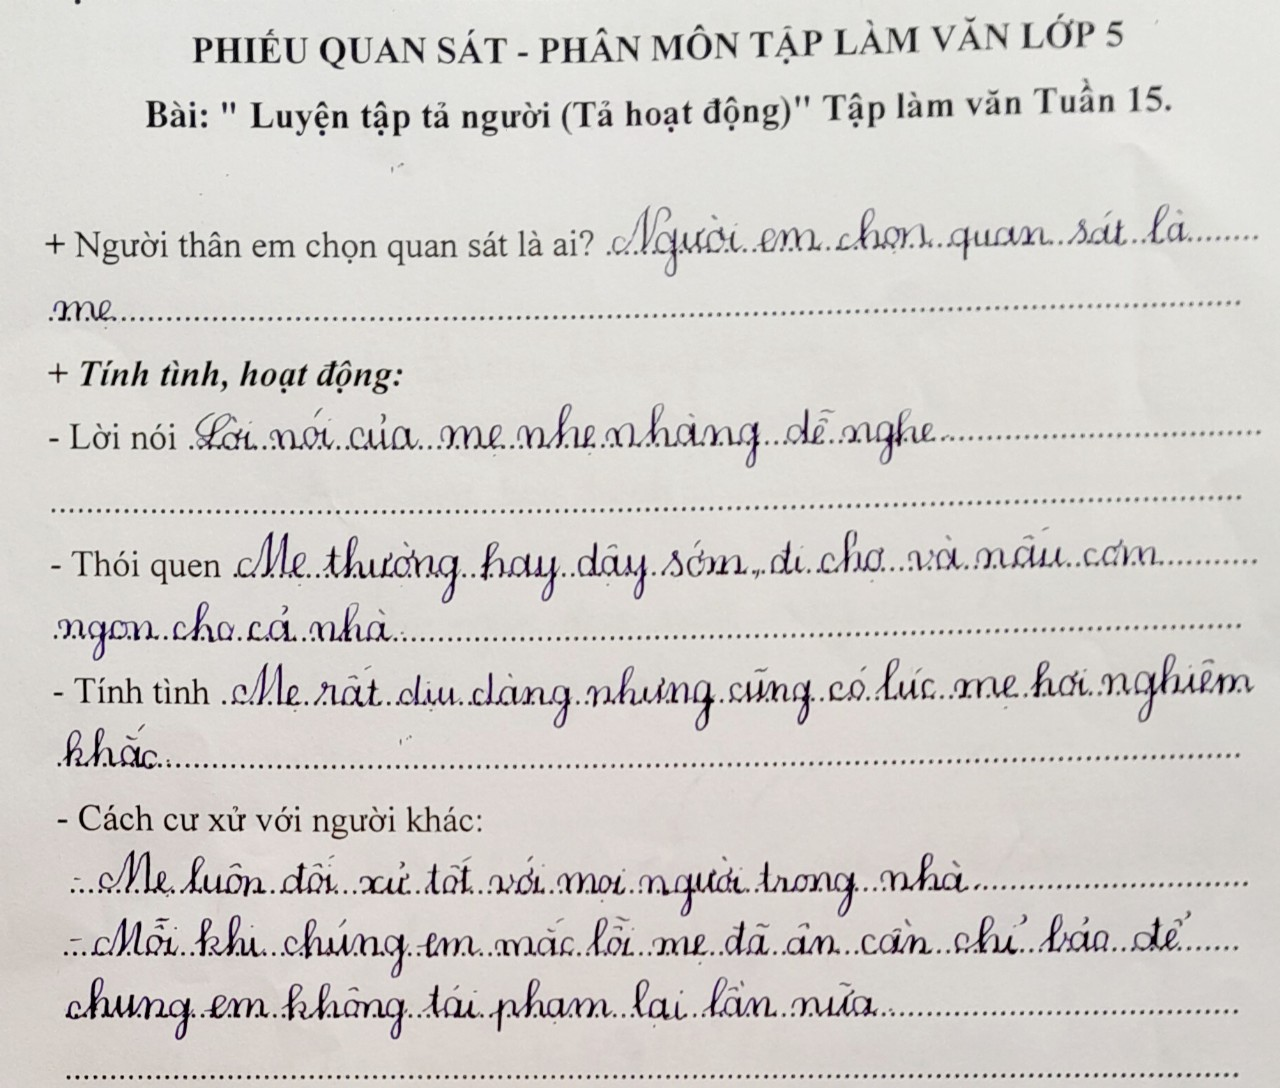 PHIẾU QUAN SÁT - PHÂN MÔN TẬP LÀM VĂN LỚP 5
Bài: " Luyện tập tả người (Tả hoạt động)" Tập làm văn Tuần 15.
+ Người thân em chọn quan sát là ai? Người em chọn quan sát là
mẹ
+ Tính tình, hoạt động:
- Lời nói Lời nói của mẹ nhẹ nhàng dễ nghe
- Thói quen Mẹ thường hay dậy sớm, đi chợ và nấu cơm
ngon cho cả nhà.
- Tính tình Mẹ rất dịu dàng nhưng cũng có lúc mẹ hơi nghiêm
khắc.
- Cách cư xử với người khác:
- Mẹ luôn đối xử tốt với mọi người trong nhà
- Mỗi khi chúng em mắc lỗi mẹ đã ân cần chỉ bảo để
chung em không tái phạm lại lần nữa.